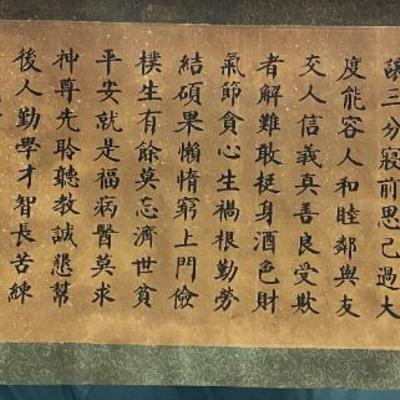 讓三分寢前思己過大
度能容人和睦鄰與友
交人信義真善良受欺
者解難敢挺身酒色財
氣節貪心生禍根勤勞
結碩果懶惰窮上門儉
樸生有餘莫忘濟世貧
平安就是福病醫莫求
神尊先聆聽教誠懇幫
後人勤學才智長苦練